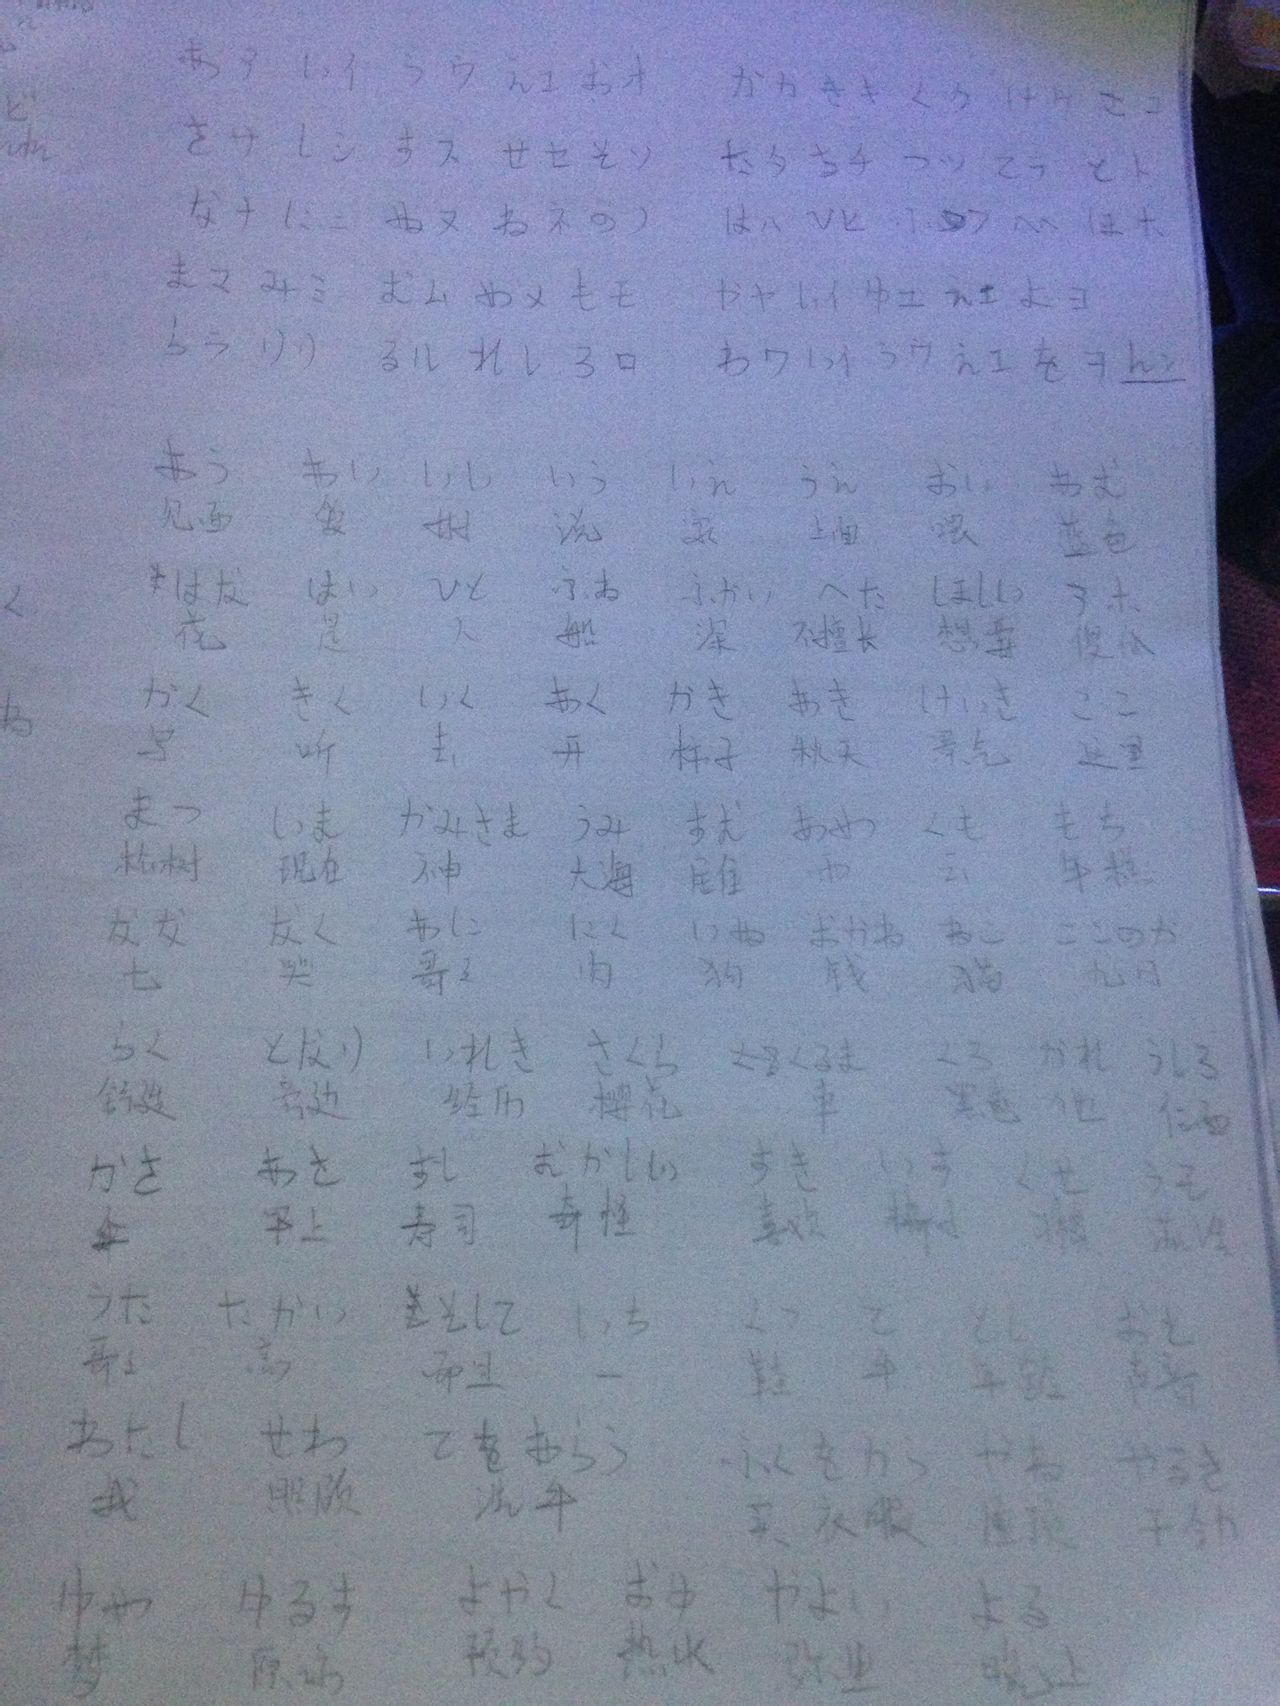 あア いイ うウ えエ おオ かカ きキ くク けケ こコ
さサ しシ すス せセ そソ たタ ちチ つツ てテ とト
なナ にニ ぬヌ ねネ のノ はハ ひヒ ふフ へヘ ほホ
まマ みミ むム めメ もモ やヤ いイ ゆユ えエ よヨ
らラ りリ るル れレ ろロ わワ いイ うウ えエ をヲ んン
あう あい いし いう いえ うえ おい あお
见面 爱 说 家 上面 喂 蓝色
はな はい ひと ふね ふかい へた ほしい アホ
花 是 人 船 深 不擅长 想要 傻瓜
かく きく いく あく かき あき けいき ここ
写 听 去 开 柿子 秋天 景气 这里
まつ いま かみさま うみ すむ あめ くも もち
松树 现在 神 大海 云 年糕
なな なく あに にく いぬ おかね ねこ ここのか
七 哭 哥 肉 狗 钱 猫 九日
らく となり りれき さくら くるま くろ かれ うしろ
旁边 经历 樱花 车 黑色 他
かさ あさ すし むかしい すき いす くせ うそ
伞 早上 寿司 奇怪 喜欢 椅子
うた たかい そして いち くつ て とし おと
歌 高 而且 一 鞋 手 年龄 声音
わたし せわ てをあらう ふくをかう やね やるき
我 照顾 洗手 买衣服 屋顶 干劲
ゆめ ゆるす よやく おゆ やよい よる
梦 原谅 预约 热水 弥生 晚上